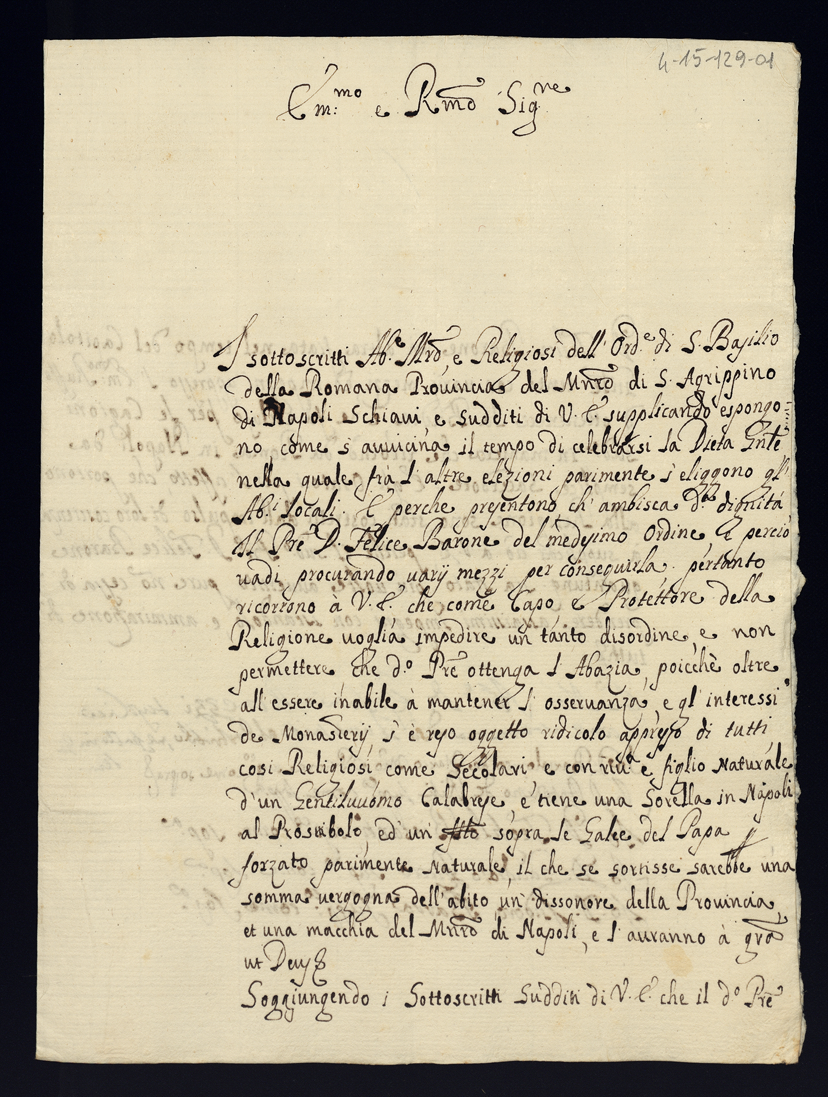 4-15-129-01
Em:mo e Rmõ Sig.ne
I sottoscritti Ab.e Mrõ e Religiosi dell' Ord.e di S. Basilio
della Romana Provincia del Mnrõ di S. Agrippino
di Napoli Schiavi, e sudditi di V. E. supplicando espongo=
no come s' avvicina il tempo di celebrarsi la Dieta Gñle
nella quale frà l' altre elezioni parimente s' eliggono gl'
Ab.i locali. E perche presentono ch' ambisca d.ta dignità
Il Prẽ D. Felice Barone del medesimo Ordine e perciò
vadi procurando varij mezzi per conseguirla. pertanto
ricorrono à V. E. che come Capo, e Protettore della
Religione voglia impedire un tanto disordine, e non
permettere che d.o Prẽ ottenga l' Abazia, poicchè oltre
all' essere inabile à mantener l' osservanza, e gl' interessi
de Monasterij s' è reso oggetto ridicolo appresso di tutti
cosi Religiosi come Secolari e è figlio Naturale
d' un Gentiluuomo Calabrese, e tiene una Sorella in Napoli
al Prostibolo, ed' un' sopra le Galee del Papa
forzato parimente Naturale, il che se sortisse sarebbe una
somma vergogna dell' abito un' dissonore della Provincia
et una macchia del Mnrõ di Napoli, e l' auranno à grã
ut Deus
Soggiungendo i Sottoscritti Sudditi di V. E. che il d.o Prẽ